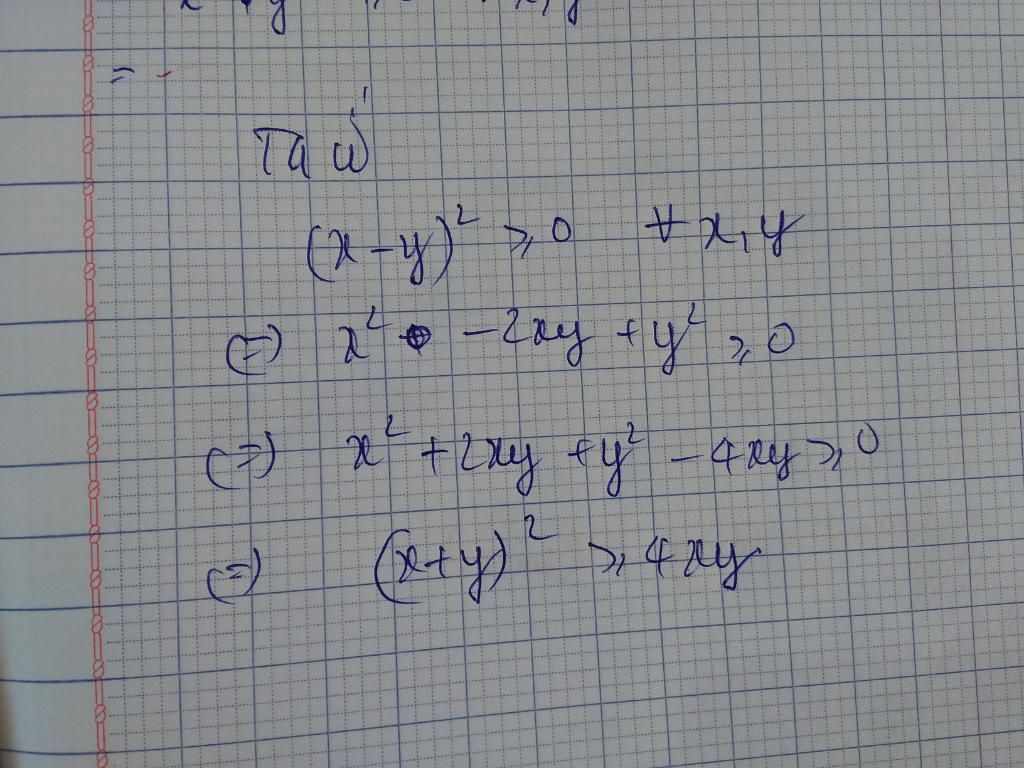 = -
Ta có
(x-y)² ≥ 0 ∀ x, y
(=) x² - 2xy + y² ≥ 0
(=) x² + 2xy + y² - 4xy ≥ 0
(=) (x+y)² ≥ 4xy